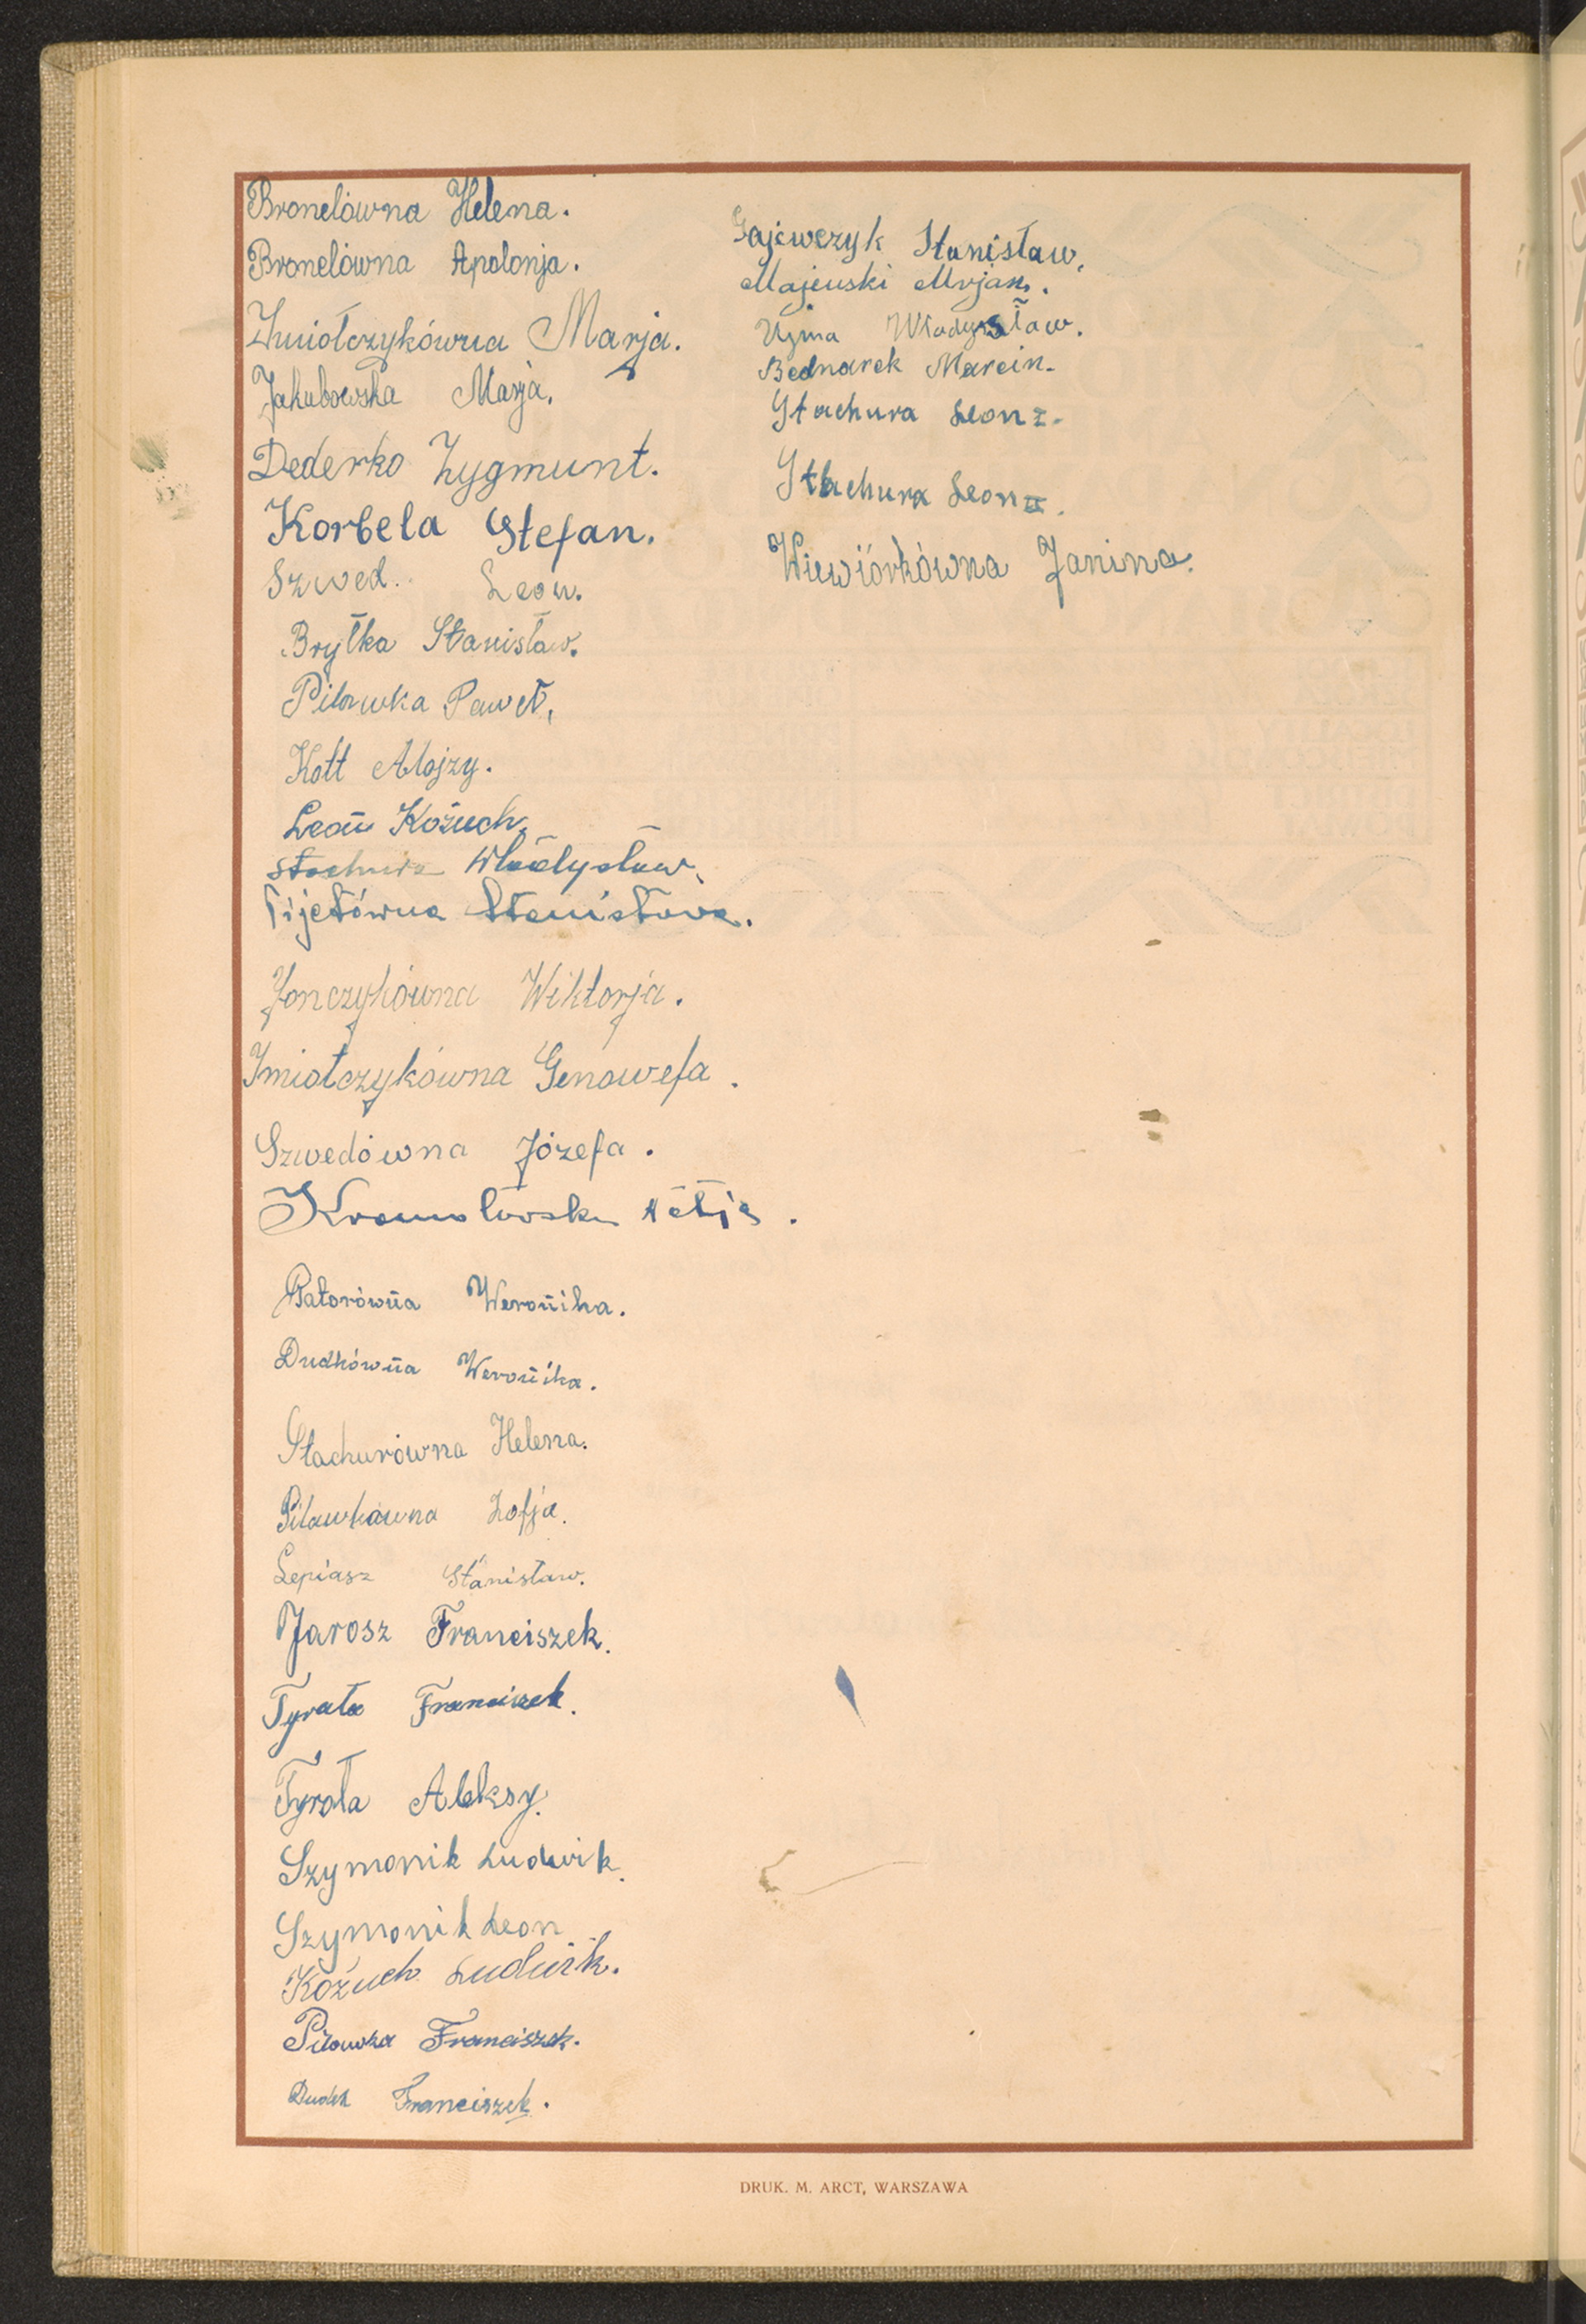 Bronelówna Helena.
Bronelówna Apolonja.
Żmiołczykówna Marja.
Jakubowska Marja.
Dederko Zygmunt.
Korbela Stefan.
Szwed. Leon.
Bryłka Stanisław.
Pilawka Paweł,
Kott Alojzy.
Leon Kożuch,
Stachura Władysław,
Pijetówna Stanisława.
Jonczykówna Wiktorja.
Imiołczykówna Genowefa.
Szwedówna Józefa.
Patorówna Weronika.
Dudkówna Weronika.
Stachurówna Helena.
Pilawkówna Zofja.
Lepiasz Stanisław.
Jarosz Franciszek.
Tyrała Franciszek.
Tyrała Aleksy.
Szymonik Ludwik.
Szymonik Leon
Kożuch Ludwik.
Pilawka Franciszek.
Dudek Franciszek.
Gajewczyk Stanisław,
Majewski Mrjan.
Ujma Władysław.
Bednarek Marcin.
Stachura Leon z.
Stachura Leon
Wiewiórkówna Janina.
DRUK. M. ARCT, WARSZAWA